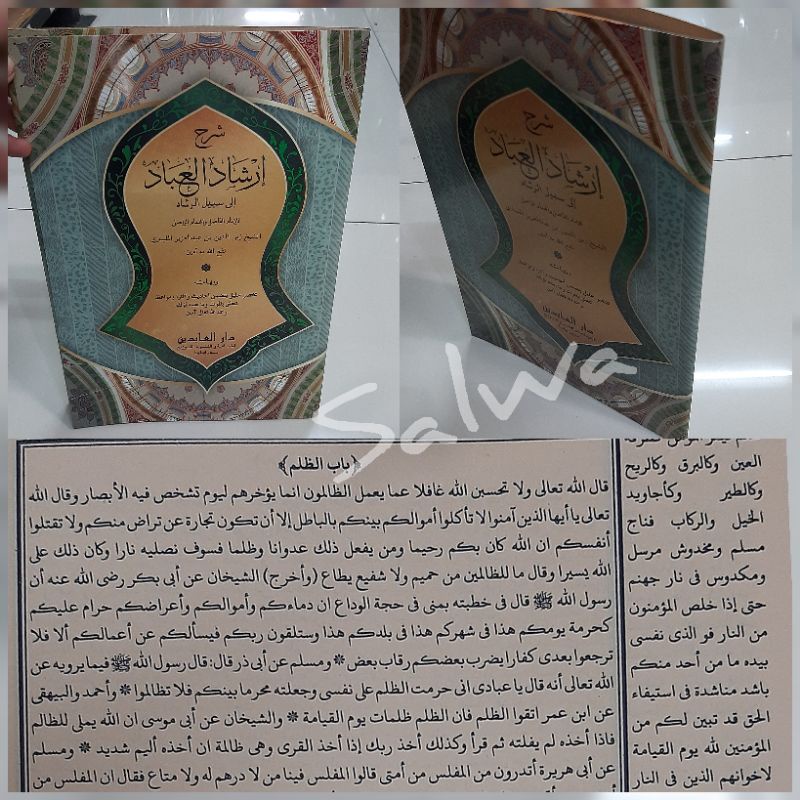 شرح
إرشاد العباد
إلى سبيل الرشاد
دار العابدين
شرح
إرشاد العباد
إلى سبيل الرشاد
دار العابدين
Salwa
﴿باب الظلم﴾
قال الله تعالى ولا تحسبن الله غافلا عما يعمل الظالمون انما يؤخرهم ليوم تشخص فيه الأبصار وقال الله
تعالى يا أيها الذين آمنوا لا تأكلوا أموالكم بينكم بالباطل إلا أن تكون تجارة عن تراض منكم ولا تقتلوا
أنفسكم ان الله كان بكم رحيما ومن يفعل ذلك عدوانا وظلما فسوف نصليه نارا وكان ذلك على
الله يسيرا وقال ما للظالمين من حميم ولا شفيع يطاع (وأخرج) الشيخان عن أبى بكر رضى الله عنه أن
رسول الله ﷺ قال فى خطبته بمنى فى حجة الوداع ان دماءكم وأموالكم وأعراضكم حرام عليكم
كحرمة يومكم هذا فى شهركم هذا فى بلدكم هذا وستلقون ربكم فيسألكم عن أعمالكم ألا فلا
ترجعوا بعدى كفارا يضرب بعضكم رقاب بعض * ومسلم عن أبى ذر قال: قال رسول الله ﷺ فيما يرويه عن
الله تعالى أنه قال يا عبادى انى حرمت الظلم على نفسى وجعلته محرما بينكم فلا تظالموا * وأحمد والبيهقى
عن ابن عمر اتقوا الظلم فان الظلم ظلمات يوم القيامة * والشيخان عن أبى موسى ان الله يملى للظالم
فاذا أخذه لم يفلته ثم قرأ وكذلك أخذ ربك إذا أخذ القرى وهى ظالمة ان أخذه أليم شديد * ومسلم
عن أبى هريرة أتدرون من المفلس من أمتى قالوا المفلس فينا من لا درهم له ولا متاع فقال ان المفلس من
العين وكالبرق وكالريح
وكالطير وكأجاويد
الخيل والركاب فناج
مسلم ومخدوش مرسل
ومكدوس فى نار جهنم
حتى إذا خلص المؤمنون
من النار فو الذى نفسى
بيده ما من أحد منكم
باشد مناشدة فى استيفاء
الحق قد تبين لكم من
المؤمنين لله يوم القيامة
لاخوانهم الذين فى النار